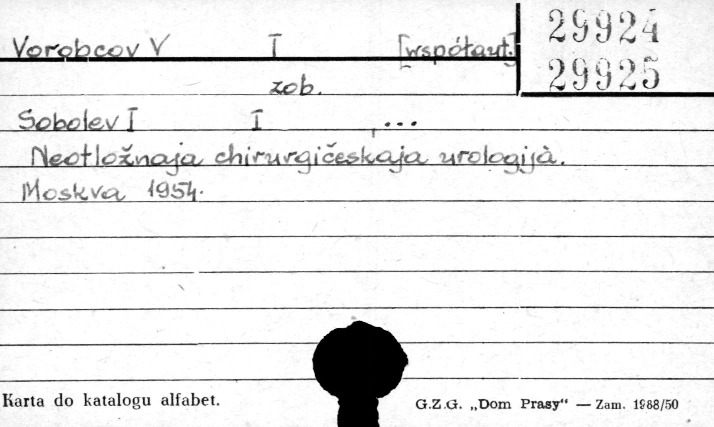 Vorobcov V I [współaut.] 29924
29925
zob.
Sobolev I I , ...
Neotložnaja chirurgičeskaja urologijà.
Moskva 1954.
Karta do katalogu alfabet. G.Z.G. „Dom Prasy" — Zam. 1968/50